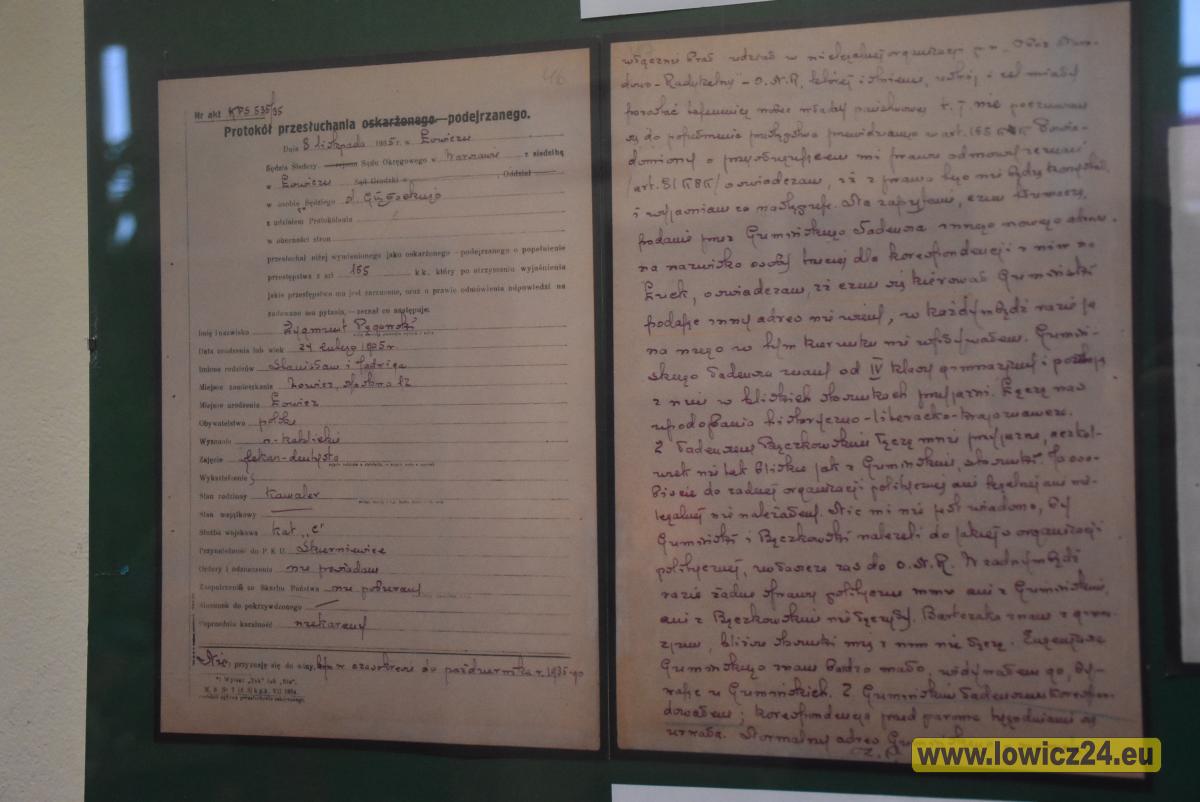 46
Nr akt KPS 535/35
Protokół przesłuchania oskarżonego — podejrzanego.
Dnia 8 listopada 1935 r. w Łowiczu
Sędzia Śledczy rejonu Sądu Okręgowego w Warszawie z siedzibą
w Łowiczu Sąd Grodzki w , Oddział
w osobie Sędziego
z udziałem Protokólanta
w obecności stron
przesłuchał niżej wymienionego jako oskarżonego - podejrzanego o popełnienie
przestępstwa z art 165 k k. który po otrzymaniu wyjaśnienia
jakie przestępstwo mu jest zarzucane, oraz o prawie odmówienia odpowiedzi na
zadawane mu pytania, — zeznał co następuje:
Imię i nazwisko Zygmunt Pągowski
Data urodzenia lub wiek 24 lutego 1905 r.
Imiona rodziców Stanisław i Jadwiga
Miejsce zamieszkania Łowicz, 12
Miejsce urodzenia Łowicz
Obywatelstwo polskie
Wyznanie rz-katolickie
Zajęcie lekarz-dentysta
Wykształcenie
Stan rodzinny kawaler
Stan majątkowy —
Służba wojskowa kat. „C"
Przynależność do P. K. U. Skierniewice
Ordery i odznaczenia nie posiadam
Zaopatrzenie ze Skarbu Państwa nie pobieram
Stosunek do pokrzywdzonego —
Poprzednia karalność niekarany
Nie, przyznaję się do winy, bym w czasokresie do października r. 1935-go
*) Wpisać „Tak" lub „Nie".
włącznie brał udział w nielegalnej organizacji p.n. „Obóz Naro-
dowo-Radykalny" - O.N.R, której istnienie, ustrój i cel miały
pozostać tajemnicą wobec władzy państwowej t. j. nie poczuwam
się do popełnienia przestępstwa przewidzianego w art. 165 KK. Powia-
domiony o przysługującem mi prawie odmowy zeznań
/art. 81 KPK/ oświadczam, iż z prawa tego nie będę korzystał
i wyjaśniam co następuje. Na zapytanie, czem tłumaczę,
podanie przez Gumińskiego Tadeusza innego nowego adresu
na nazwisko osoby trzeciej dla korespondencji z nim na
, oświadczam, iż czem się kierował Gumiński
podając inny adres nie wiem, w każdym bądź razie ja
na niego w tym kierunku nie wpływałem. Gumiń-
skiego Tadeusza znam od IV klasy gimnazjum i pozostaję
z nim w bliskich stosunkach przyjaźni. Łączą nas
upodobania historyczno-literacko-krajoznawcze.
Z Tadeuszem Bączkowskim łączą mnie przyjazne, aczkol-
wiek nie tak bliskie jak z Gumińskim, stosunki. Ja oso-
biście do żadnej organizacji politycznej ani legalnej ani nie-
legalnej nie należałem. Nic mi nie jest wiadomo, by
Gumiński i Bączkowski należeli do jakiejś organizacji
politycznej, zwłaszcza zaś do O.N.R. W żadnym bądź
razie żadne sprawy polityczne mnie ani z Gumińskim,
ani z Bączkowskim nie łączyły. Bartczaka znam z
, bliższe stosunki mię z nim nie łączą. Eugeniusza
Gumińskiego znam bardzo mało, widywałem go, by-
wając u Gumińskich. Z Gumińskim Tadeuszem korespon-
dowałem; korespondencja przed paroma tygodniami się
urwała. Normalny adres
www.lowicz24.eu